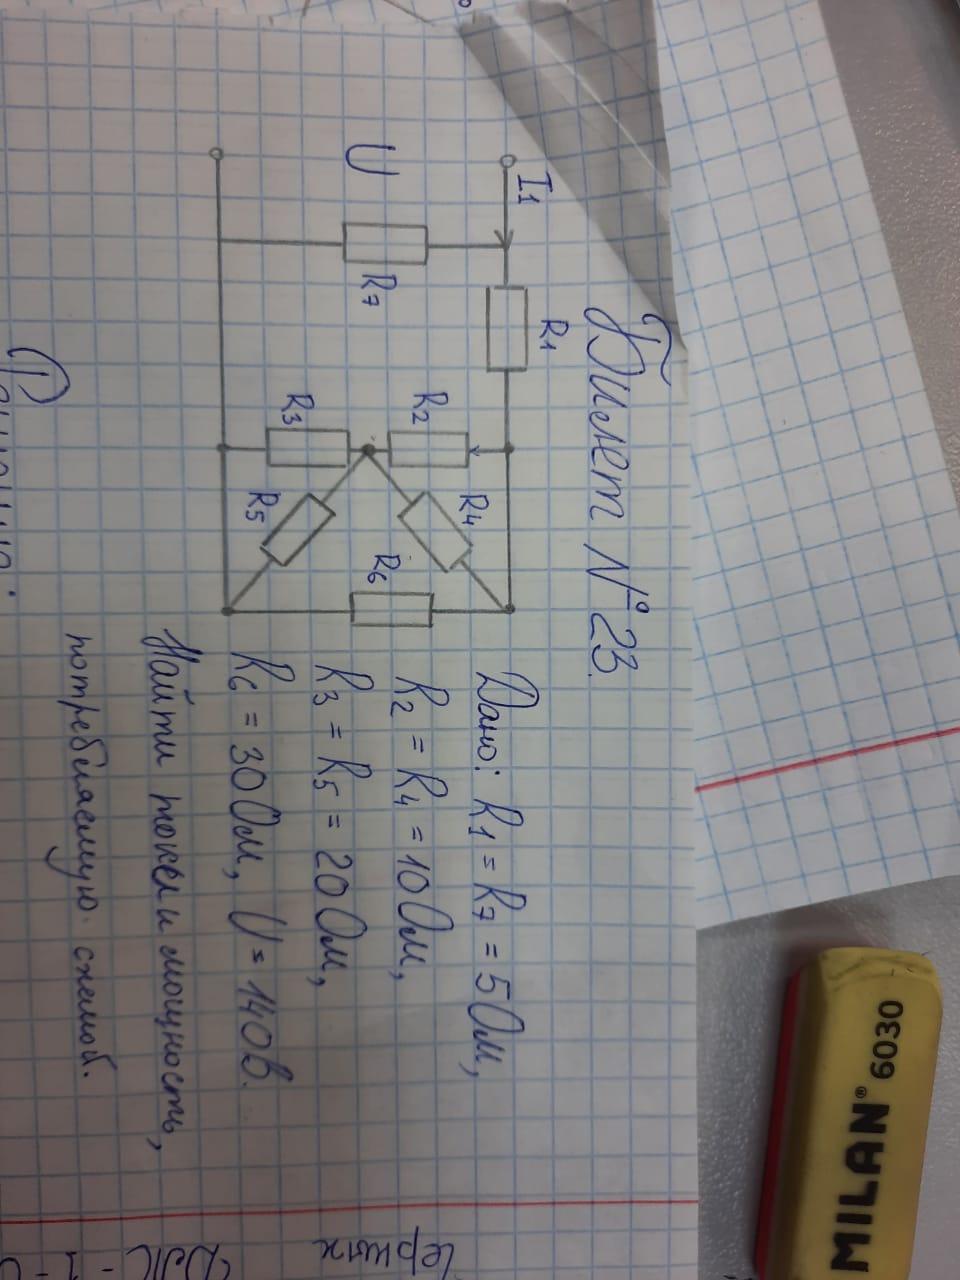 Билет №23.
I1
R1
U
R7
R2
R4
R3
R5
R6
Дано: R1 = R7 = 5 Ом,
R2 = R4 = 10 Ом,
R3 = R5 = 20 Ом,
R6 = 30 Ом, U = 140 В.
Найти токи и мощность,
потребляемую схемой.
MILAN® 6030